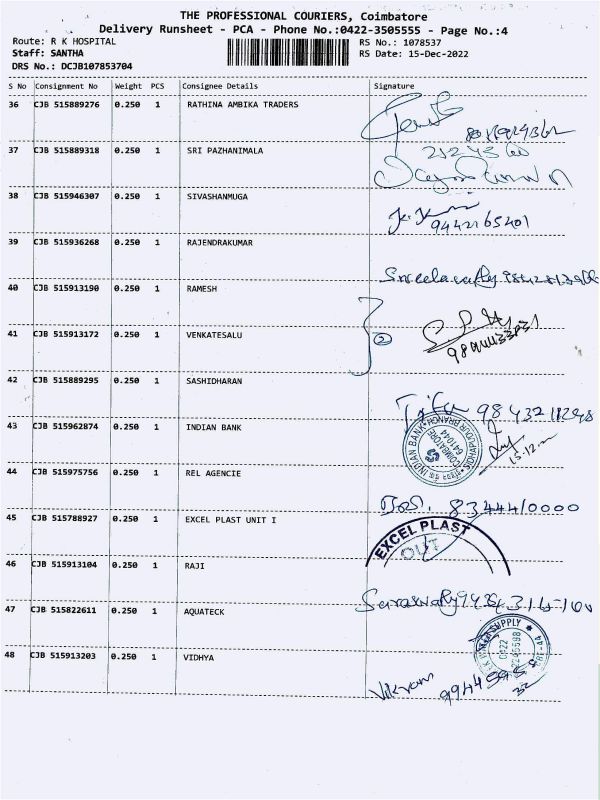 THE PROFESSIONAL COURIERS, Coimbatore
Delivery Runsheet - PCA - Phone No.:0422-3505555 - Page No.:4
Route: R K HOSPITAL
RS No.: 1078537
Staff: SANTHA
RS Date: 15-Dec-2022
DRS No.: DCJB107853704
S No Consignment No Weight PCS Consignee Details Signature
36 CJB 515889276 0.250 1 RATHINA AMBIKA TRADERS
37 CJB 515889318 0.250 1 SRI PAZHANIMALA
38 CJB 515946307 0.250 1 SIVASHANMUGA
9442165401
39 CJB 515936268 0.250 1 RAJENDRAKUMAR
40 CJB 515913190 0.250 1 RAMESH
41 CJB 515913172 0.250 1 VENKATESALU
2
42 CJB 515889295 0.250 1 SASHIDHARAN
9843211248
43 CJB 515962874 0.250 1 INDIAN BANK
INDIAN BANK
COIMBATORE
641044
15.12.22
44 CJB 515975756 0.250 1 REL AGENCIE
8344410000
45 CJB 515788927 0.250 1 EXCEL PLAST UNIT I
EXCEL PLAST
OUT
46 CJB 515913104 0.250 1 RAJI
47 CJB 515822611 0.250 1 AQUATECK
SUPPLY
0422
48 CJB 515913203 0.250 1 VIDHYA
Vikram